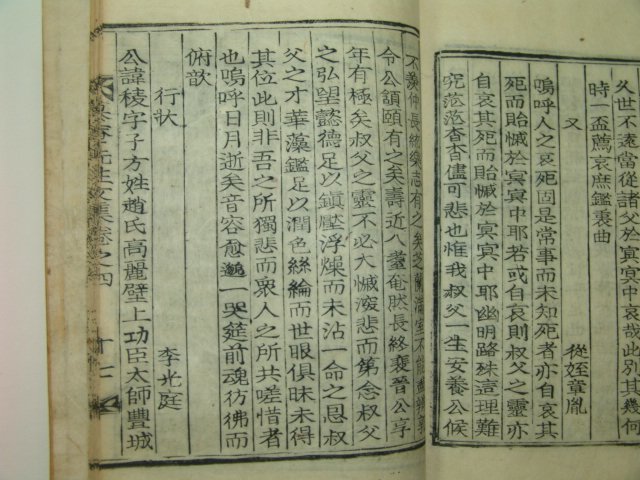 久世不遠當從諸父於冥冥中哀哉此別其幾何
時一盃薦哀庶鑑衷曲
又
從姪章胤
嗚呼人之哀死固是常事而未知死者亦哀其
死而貽慽於冥冥中耶若或自哀則叔父之靈亦
自哀其死而貽慽於冥冥中耶幽明路殊這理難
究茫茫杳杳儘可悲也惟我叔父一生安養公候
不羨仲長統樂志有之矣芝蘭滿室不能
令公頷頤有之矣壽近八耋奄然長終裵晉公享
年有極矣叔父之靈不必大慽深悲而第念叔父
之弘望懿德足以鎭壓浮燥而未沾一命之恩叔
父之才華藻鑑足以潤色絲綸而世眼俱昧未得
其位此則非吾之所獨悲而衆人之所共嗟惜者
也嗚呼日月逝矣音容愈邈一哭筵前魂彷彿而
俯歆
行狀
李光庭
公諱稜字子方姓趙氏高麗壁上功臣太師豐城
先生文集卷之四